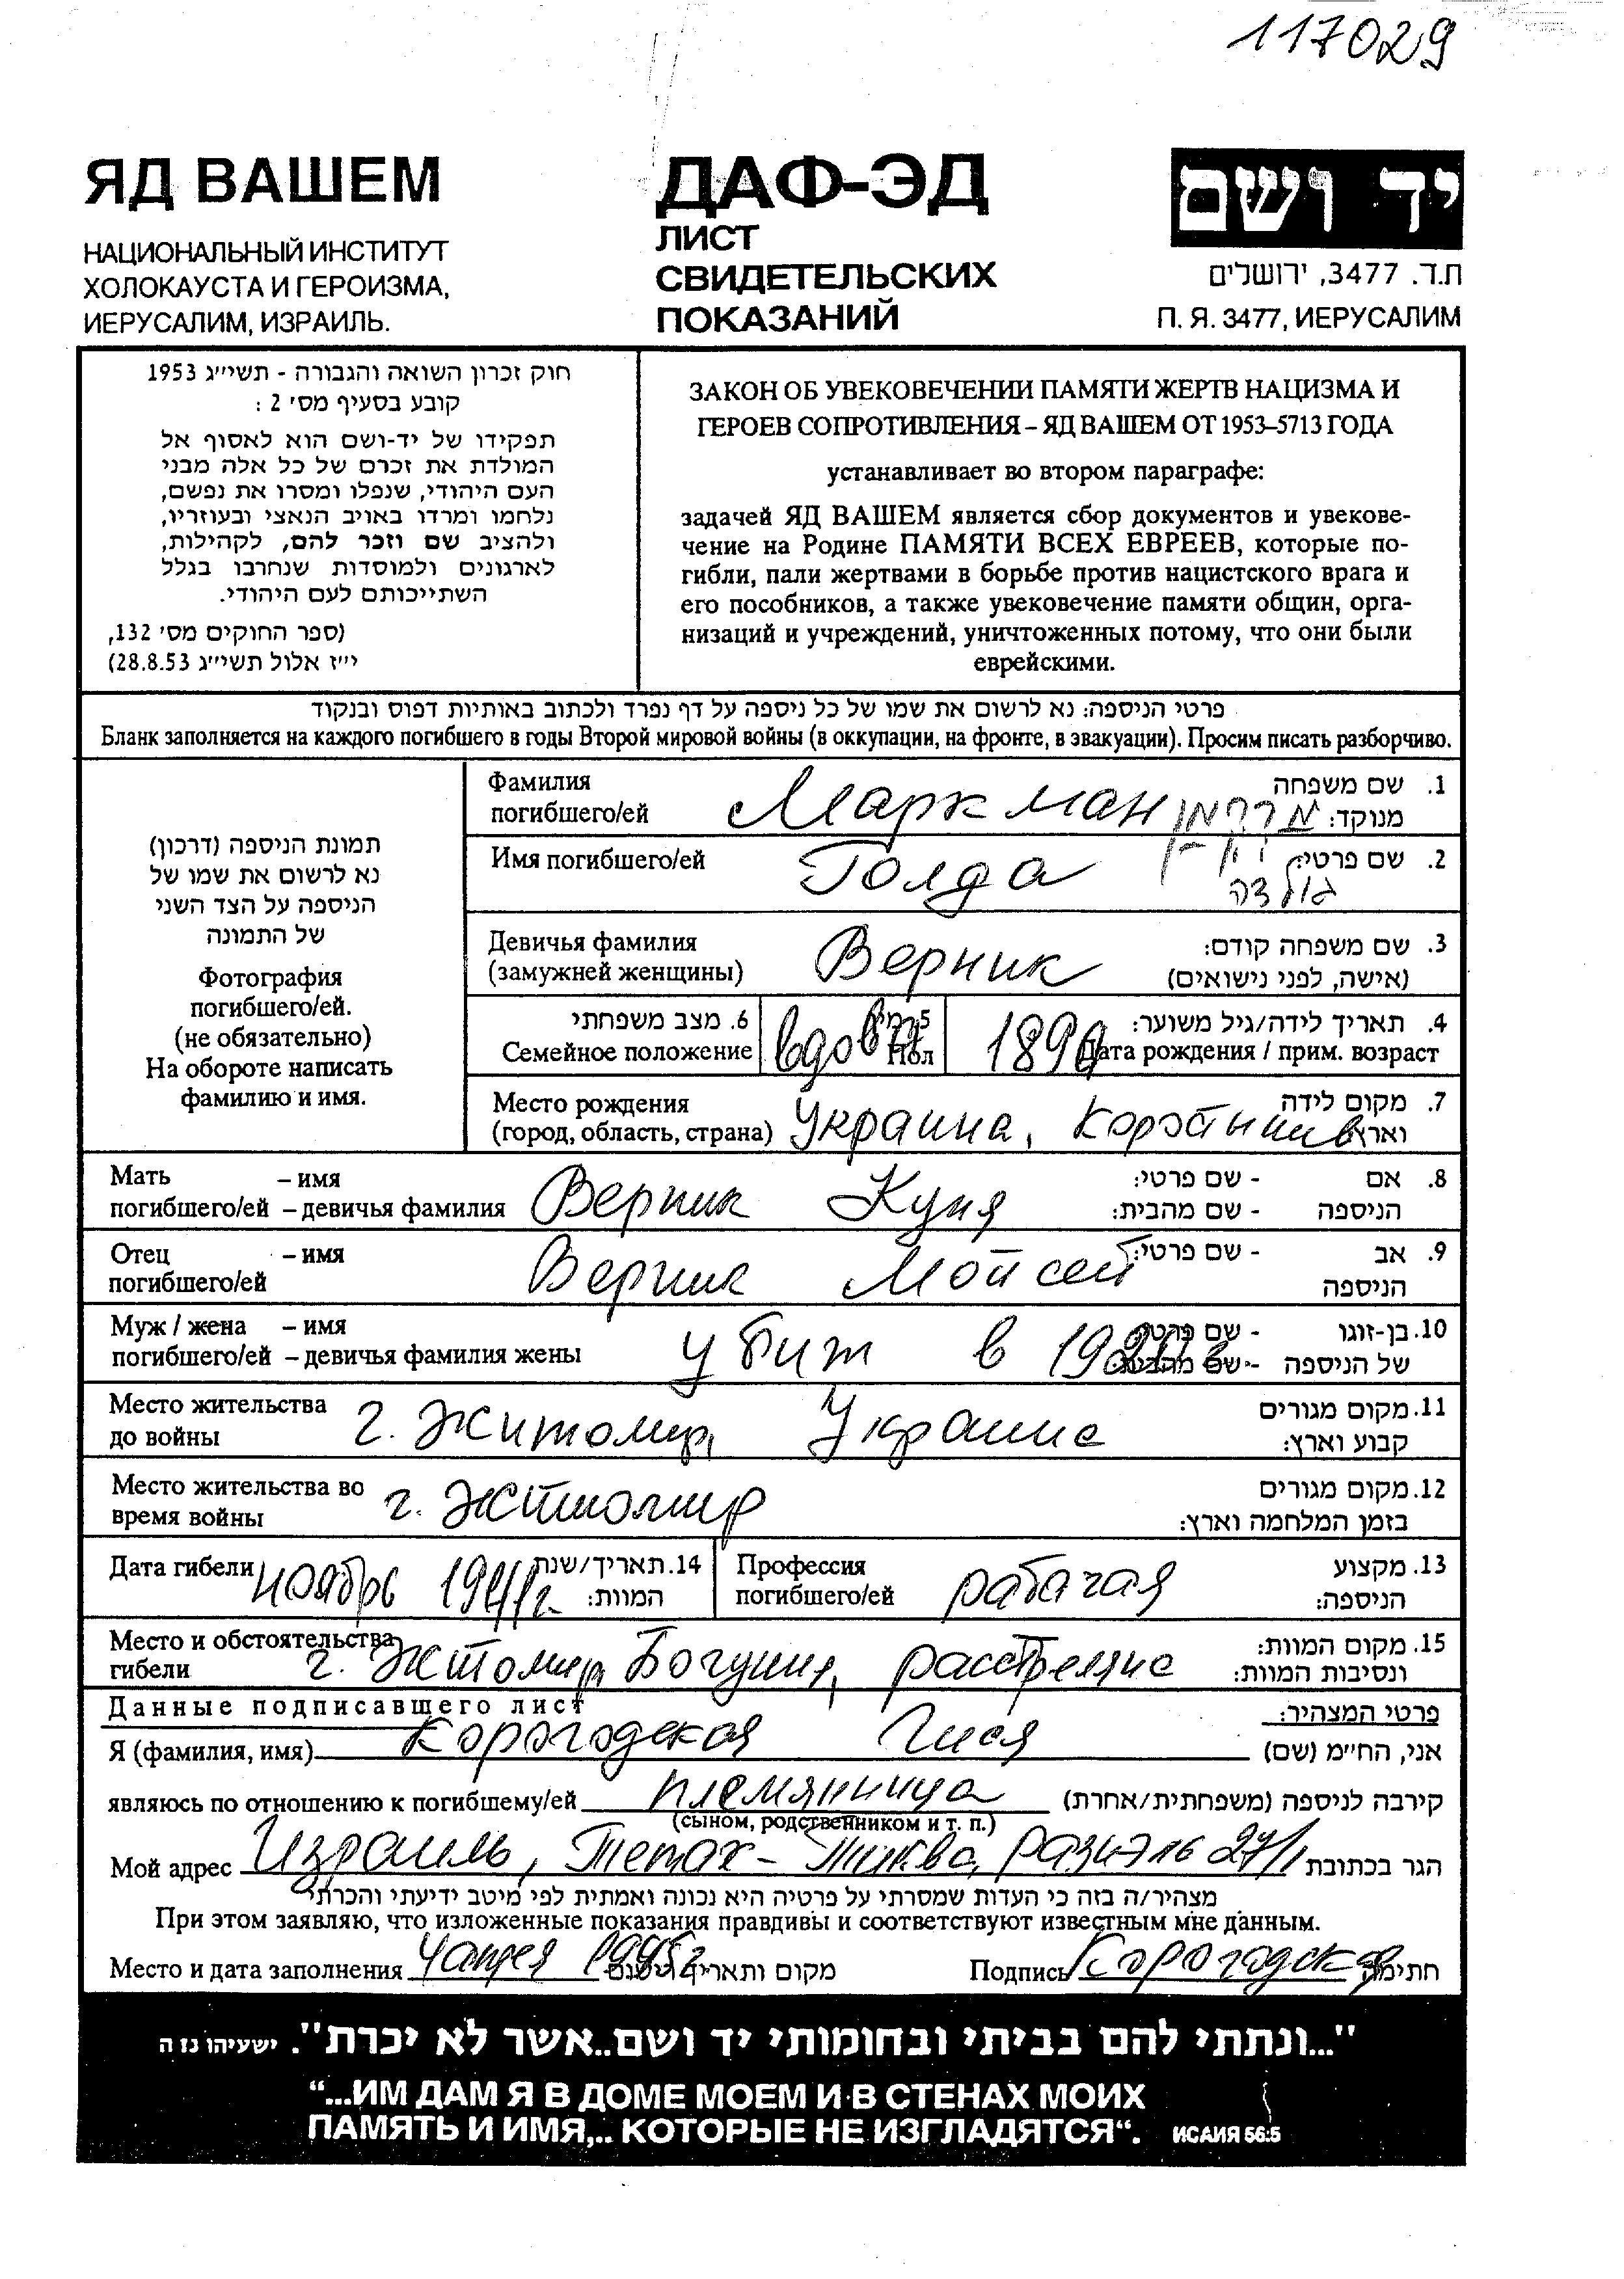 117029
ЯД ВАШЕМ
НАЦИОНАЛЬНЫЙ ИНСТИТУТ
ХОЛОКАУСТА И ГЕРОИЗМА,
ИЕРУСАЛИМ, ИЗРАИЛЬ.
ДАФ-ЭД
ЛИСТ
СВИДЕТЕЛЬСКИХ
ПОКАЗАНИЙ
יד ושם
ת.ד. 3477, ירושלים
П. Я. 3477, ИЕРУСАЛИМ
חוק זכרון השואה והגבורה - תשי״ג 1953
קובע בסעיף מס׳ 2 :
תפקידו של יד-ושם הוא לאסוף אל
המולדת את זכרם של כל אלה מבני
העם היהודי, שנפלו ומסרו את נפשם,
נלחמו ומרדו באויב הנאצי ובעוזריו,
ולהציב שם וזכר להם, לקהילות,
לארגונים ולמוסדות שנחרבו בגלל
השתייכותם לעם היהודי.
(ספר החוקים מס׳ 132,
י״ז אלול תשי״ג 28.8.53)
ЗАКОН ОБ УВЕКОВЕЧЕНИИ ПАМЯТИ ЖЕРТВ НАЦИЗМА И
ГЕРОЕВ СОПРОТИВЛЕНИЯ – ЯД ВАШЕМ ОТ 1953–5713 ГОДА
устанавливает во втором параграфе:
задачей ЯД ВАШЕМ является сбор документов и увекове-
чение на Родине ПАМЯТИ ВСЕХ ЕВРЕЕВ, которые по-
гибли, пали жертвами в борьбе против нацистского врага и
его пособников, а также увековечение памяти общин, орга-
низаций и учреждений, уничтоженных потому, что они были
еврейскими.
פרטי הניספה: נא לרשום את שמו של כל ניספה על דף נפרד ולכתוב באותיות דפוס ובנקוד
Бланк заполняется на каждого погибшего в годы Второй мировой войны (в оккупации, на фронте, в эвакуации). Просим писать разборчиво.
תמונת הניספה (דרכון)
נא לרשום את שמו של
הניספה על הצד השני
של התמונה
Фотография
погибшего/ей.
(не обязательно)
На обороте написать
фамилию и имя.
Фамилия
погибшего/ей Маркман מרקמן
1. שם משפחה
מנוקד:
Имя погибшего/ей Голда גולדה
2. שם פרטי:
Девичья фамилия
(замужней женщины) Верник
3. שם משפחה קודם:
(אישה, לפני נישואים)
6. מצב משפחתי
Семейное положение вдова
5. מין
Пол
4. תאריך לידה/גיל משוער:
Дата рождения / прим. возраст 1890
Место рождения
(город, область, страна) Украина,
7. מקום לידה
וארץ
Мать – имя
погибшего/ей – девичья фамилия Верник Куня
8. אם - שם פרטי:
הניספה - שם מהבית:
Отец – имя
погибшего/ей Верник Мойсей
9. אב - שם פרטי:
הניספה
Муж / жена – имя
погибшего/ей – девичья фамилия жены убит в
10. בן-זוגו - שם פרטי:
של הניספה - שם מהבית:
Место жительства
до войны г. Житомир, Украине
11. מקום מגורים
קבוע וארץ:
Место жительства во
время войны г. Житомир
12. מקום מגורים
בזמן המלחמה וארץ:
Дата гибели ноябрь 1941г.
14. תאריך/שנת
המוות:
Профессия
погибшего/ей рабочая
13. מקצוע
הניספה:
Место и обстоятельства
гибели г. Житомир Богуния,
15. מקום המוות:
ונסיבות המוות:
Данные подписавшего лист
פרטי המצהיר:
Я (фамилия, имя) Корогодская Гися אני, הח״מ (שם)
являюсь по отношению к погибшему/ей племянница קירבה לניספה (משפחתית/אחרת)
(сыном, родственником и т. п.)
Мой адрес Израиль, Петах-Тиква, 27/1 הגר בכתובת
מצהיר/ה בזה כי העדות שמסרתי על פרטיה היא נכונה ואמתית לפי מיטב ידיעתי והכרתי
При этом заявляю, что изложенные показания правдивы и соответствуют известным мне данным.
Место и дата заполнения 1995г מקום ותאריך רישום
Подпись Корогодская חתימה
"...ונתתי להם בביתי ובחומותי יד ושם..אשר לא יכרת". ישעיהו נו ה
“...ИМ ДАМ Я В ДОМЕ МОЕМ И В СТЕНАХ МОИХ
ПАМЯТЬ И ИМЯ,.. КОТОРЫЕ НЕ ИЗГЛАДЯТСЯ“. ИСАИЯ 56:5